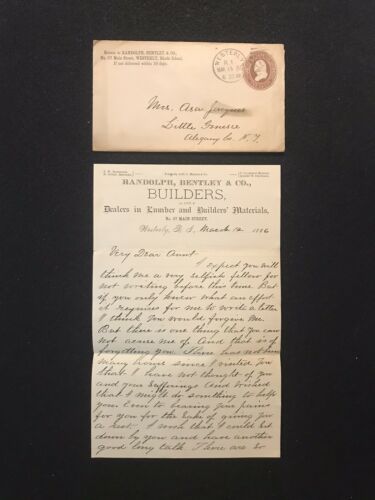 Return to RANDOLPH, BENTLEY & CO.,
No. 67 Main Street, WESTERLY, Rhode Island,
If not delivered within 10 days.
WESTERLY
R.I.
MAR 15
Mrs. Asa
Little Genesee
Alegany Co. N.Y.
RANDOLPH, BENTLEY & CO.,
BUILDERS,
Dealers in Lumber and Builders' Materials,
No. 67 MAIN STREET.
Westerly, R. I., March 12 1886
Very Dear Aunt
I expect you will
think me a very selfish fellow for
not writing before this time But
if you only knew what an effort
it requires for me to write a letter
I think you would forgive me.
But there is one thing that you can
not accuse me of. And that is of
forgetting you. There has not been
many hours since I visited you
that I have not thought of you
and your sufferings And wished
that I might do something to help
you Even to bearing your pains
for you for the sake of giving you
a rest. I wish that I could sit
down by you and have another
good long talk There are so